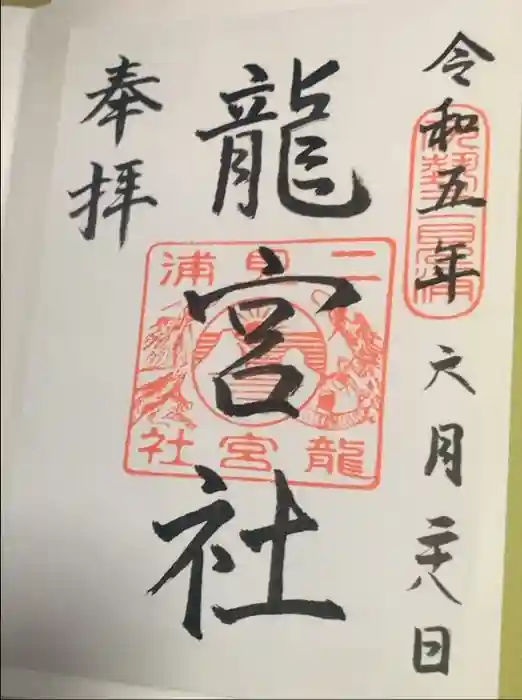 令和五年六月二十八日
伊勢二見浦
龍宮社
二見浦
龍宮社
奉拝